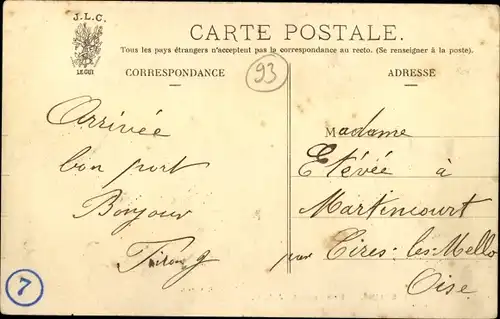 J.L.C.
LE GUI
CARTE POSTALE.
Tous les pays étrangers n'acceptent pas la correspondance au recto. (Se renseigner à la poste).
CORRESPONDANCE
ADRESSE
93
Arrivée
bon port
Bonjour
Madame
Etévée à
Martincourt
par Cires-les-Mello
Oise
7